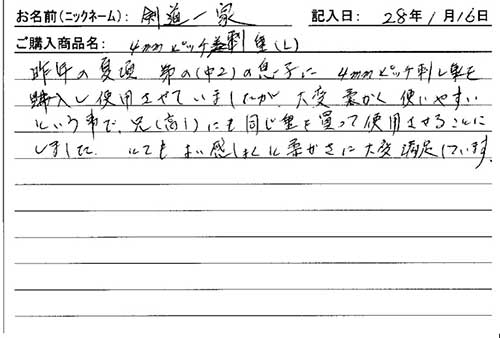 お名前(ニックネーム): 剣道一家 記入日: 28年1月16日
ご購入商品名: 4mmピッチ 刺 (L)
昨年の夏頃 弟の(中2)の息子に 4mmピッチ刺し を
購入し使用させていましたが 大変 柔かく 使いやすい
という事で、兄(高1)にも同じ を買って使用させることに
しました。 とても よい感じ に柔かさに大変満足しています。